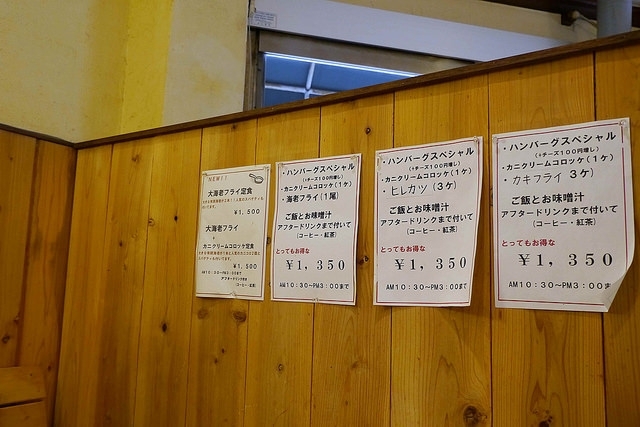 NEW!!
大海老フライ定食
¥1,500
大海老フライ
カニクリームコロッケ定食
¥1,500
AM10:30~PM3:00まで
アフタードリンク付き
(コーヒー・紅茶)
・ハンバーグスペシャル
(+チーズ100円増し)
・カニクリームコロッケ(1ケ)
・海老フライ(1尾)
ご飯とお味噌汁
アフタードリンクまで付いて
(コーヒー・紅茶)
とってもお得な
¥1,350
AM10:30~PM3:00まで
・ハンバーグスペシャル
(+チーズ100円増し)
・カニクリームコロッケ(1ケ)
・ヒレカツ(3ケ)
ご飯とお味噌汁
アフタードリンクまで付いて
(コーヒー・紅茶)
とってもお得な
¥1,350
AM10:30~PM3:00まで
・ハンバーグスペシャル
(+チーズ100円増し)
・カニクリームコロッケ(1ケ)
・カキフライ 3ケ)
ご飯とお味噌汁
アフタードリンクまで付いて
(コーヒー・紅茶)
とってもお得な
¥1,350
AM10:30~PM3:00ま